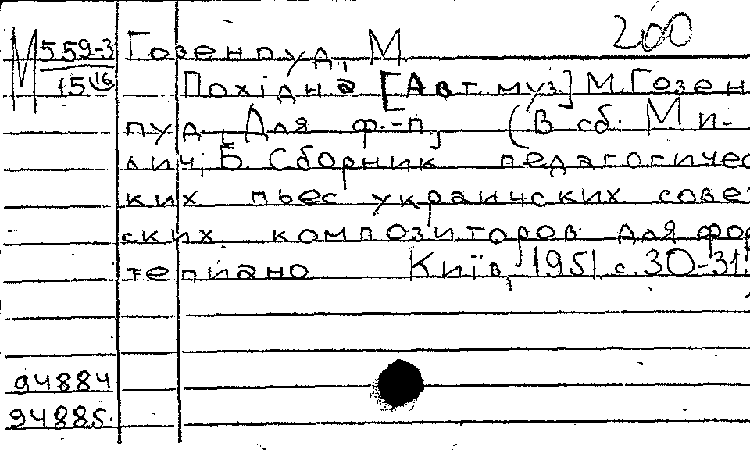 200
М 559-3 Гозенпуд, М.
15416 Похідна [Авт. муз] М. Гозен-
пуд, Для ф.-п, (В сб. Ми-
лич, Б. Сборник педагогичес
ких пьес украинских сове
ских композиторов для фор
тепиано Київ, 1951 с. 30-31.
94884
94885.